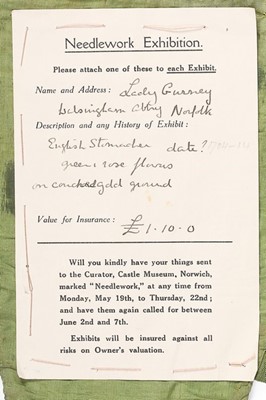 Needlework Exhibition.
Please attach one of these to each Exhibit.
Name and Address : Lady Gurney
Walsingham Abbey Norfolk
Description and any History of Exhibit :
English Stomacher date ?
green & rose flowers
on couched gold ground
Value for Insurance : £1-10-0
Will you kindly have your things sent
to the Curator, Castle Museum, Norwich,
marked "Needlework," at any time from
Monday, May 19th, to Thursday, 22nd ;
and have them again called for between
June 2nd and 7th.
Exhibits will be insured against all
risks on Owner's valuation.